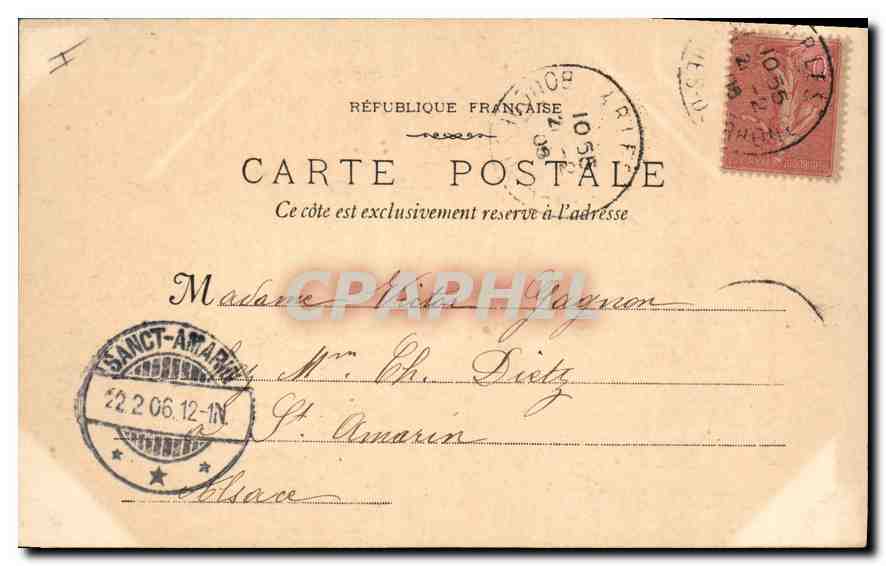 RÉPUBLIQUE FRANÇAISE
CARTE POSTALE
Ce côte est exclusivement reserve à l'adresse
Madame Gagnon
chez Mme Ch. Dietz
à St Amarin
Alsace
SANCT-AMARIN
22.2 06.12-1N.
ARLES
10 55
ARLES
10 55
CPAPHIL